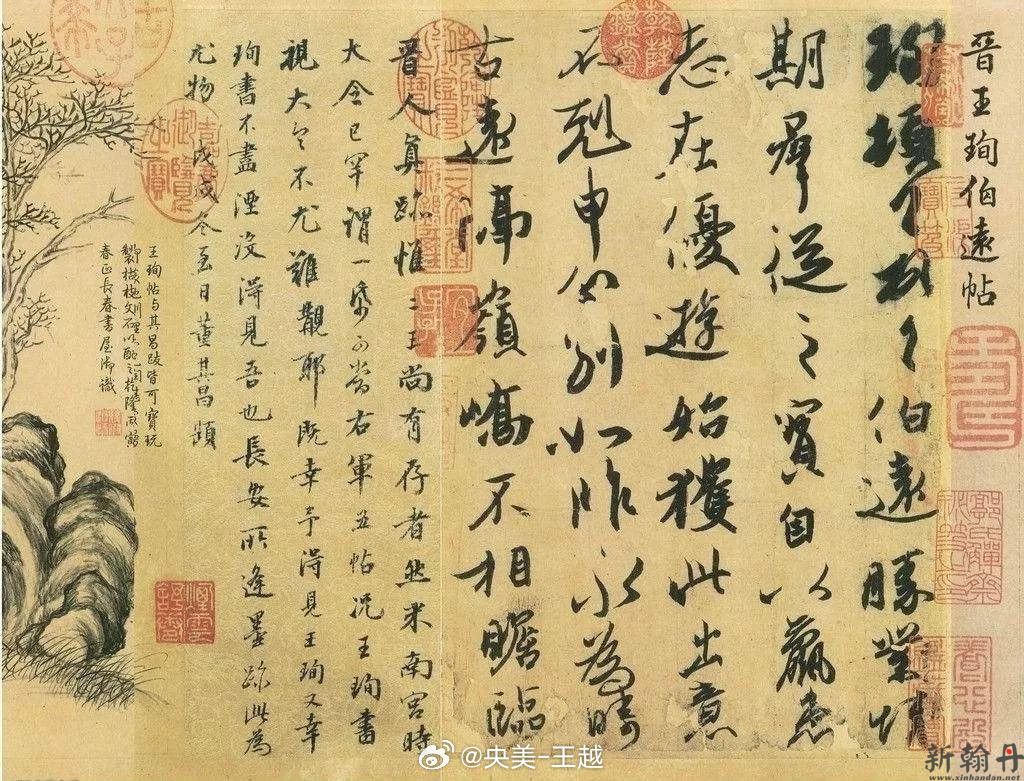 晉王珣伯遠帖
珣頓首頓首伯遠勝業情
期群從之寶自以羸患
志在優遊始獲此出意
不剋申分別如昨永為疇
古遠隔嶺嶠不相瞻臨
晉人真跡惟二王尚有存者然米南宮時
大令已罕謂一紙可當右軍五帖況王珣書
視大令不尤難覯耶既幸予得見王珣又幸
珣書不盡湮沒得見吾也長安所逢墨跡此為
尤物戊戌冬至日董其昌題
王珣帖与其昌跋皆可寶玩
即裝橫
春正長春書屋御識
@央美-王越
新翰丹
www.xinhandan.net